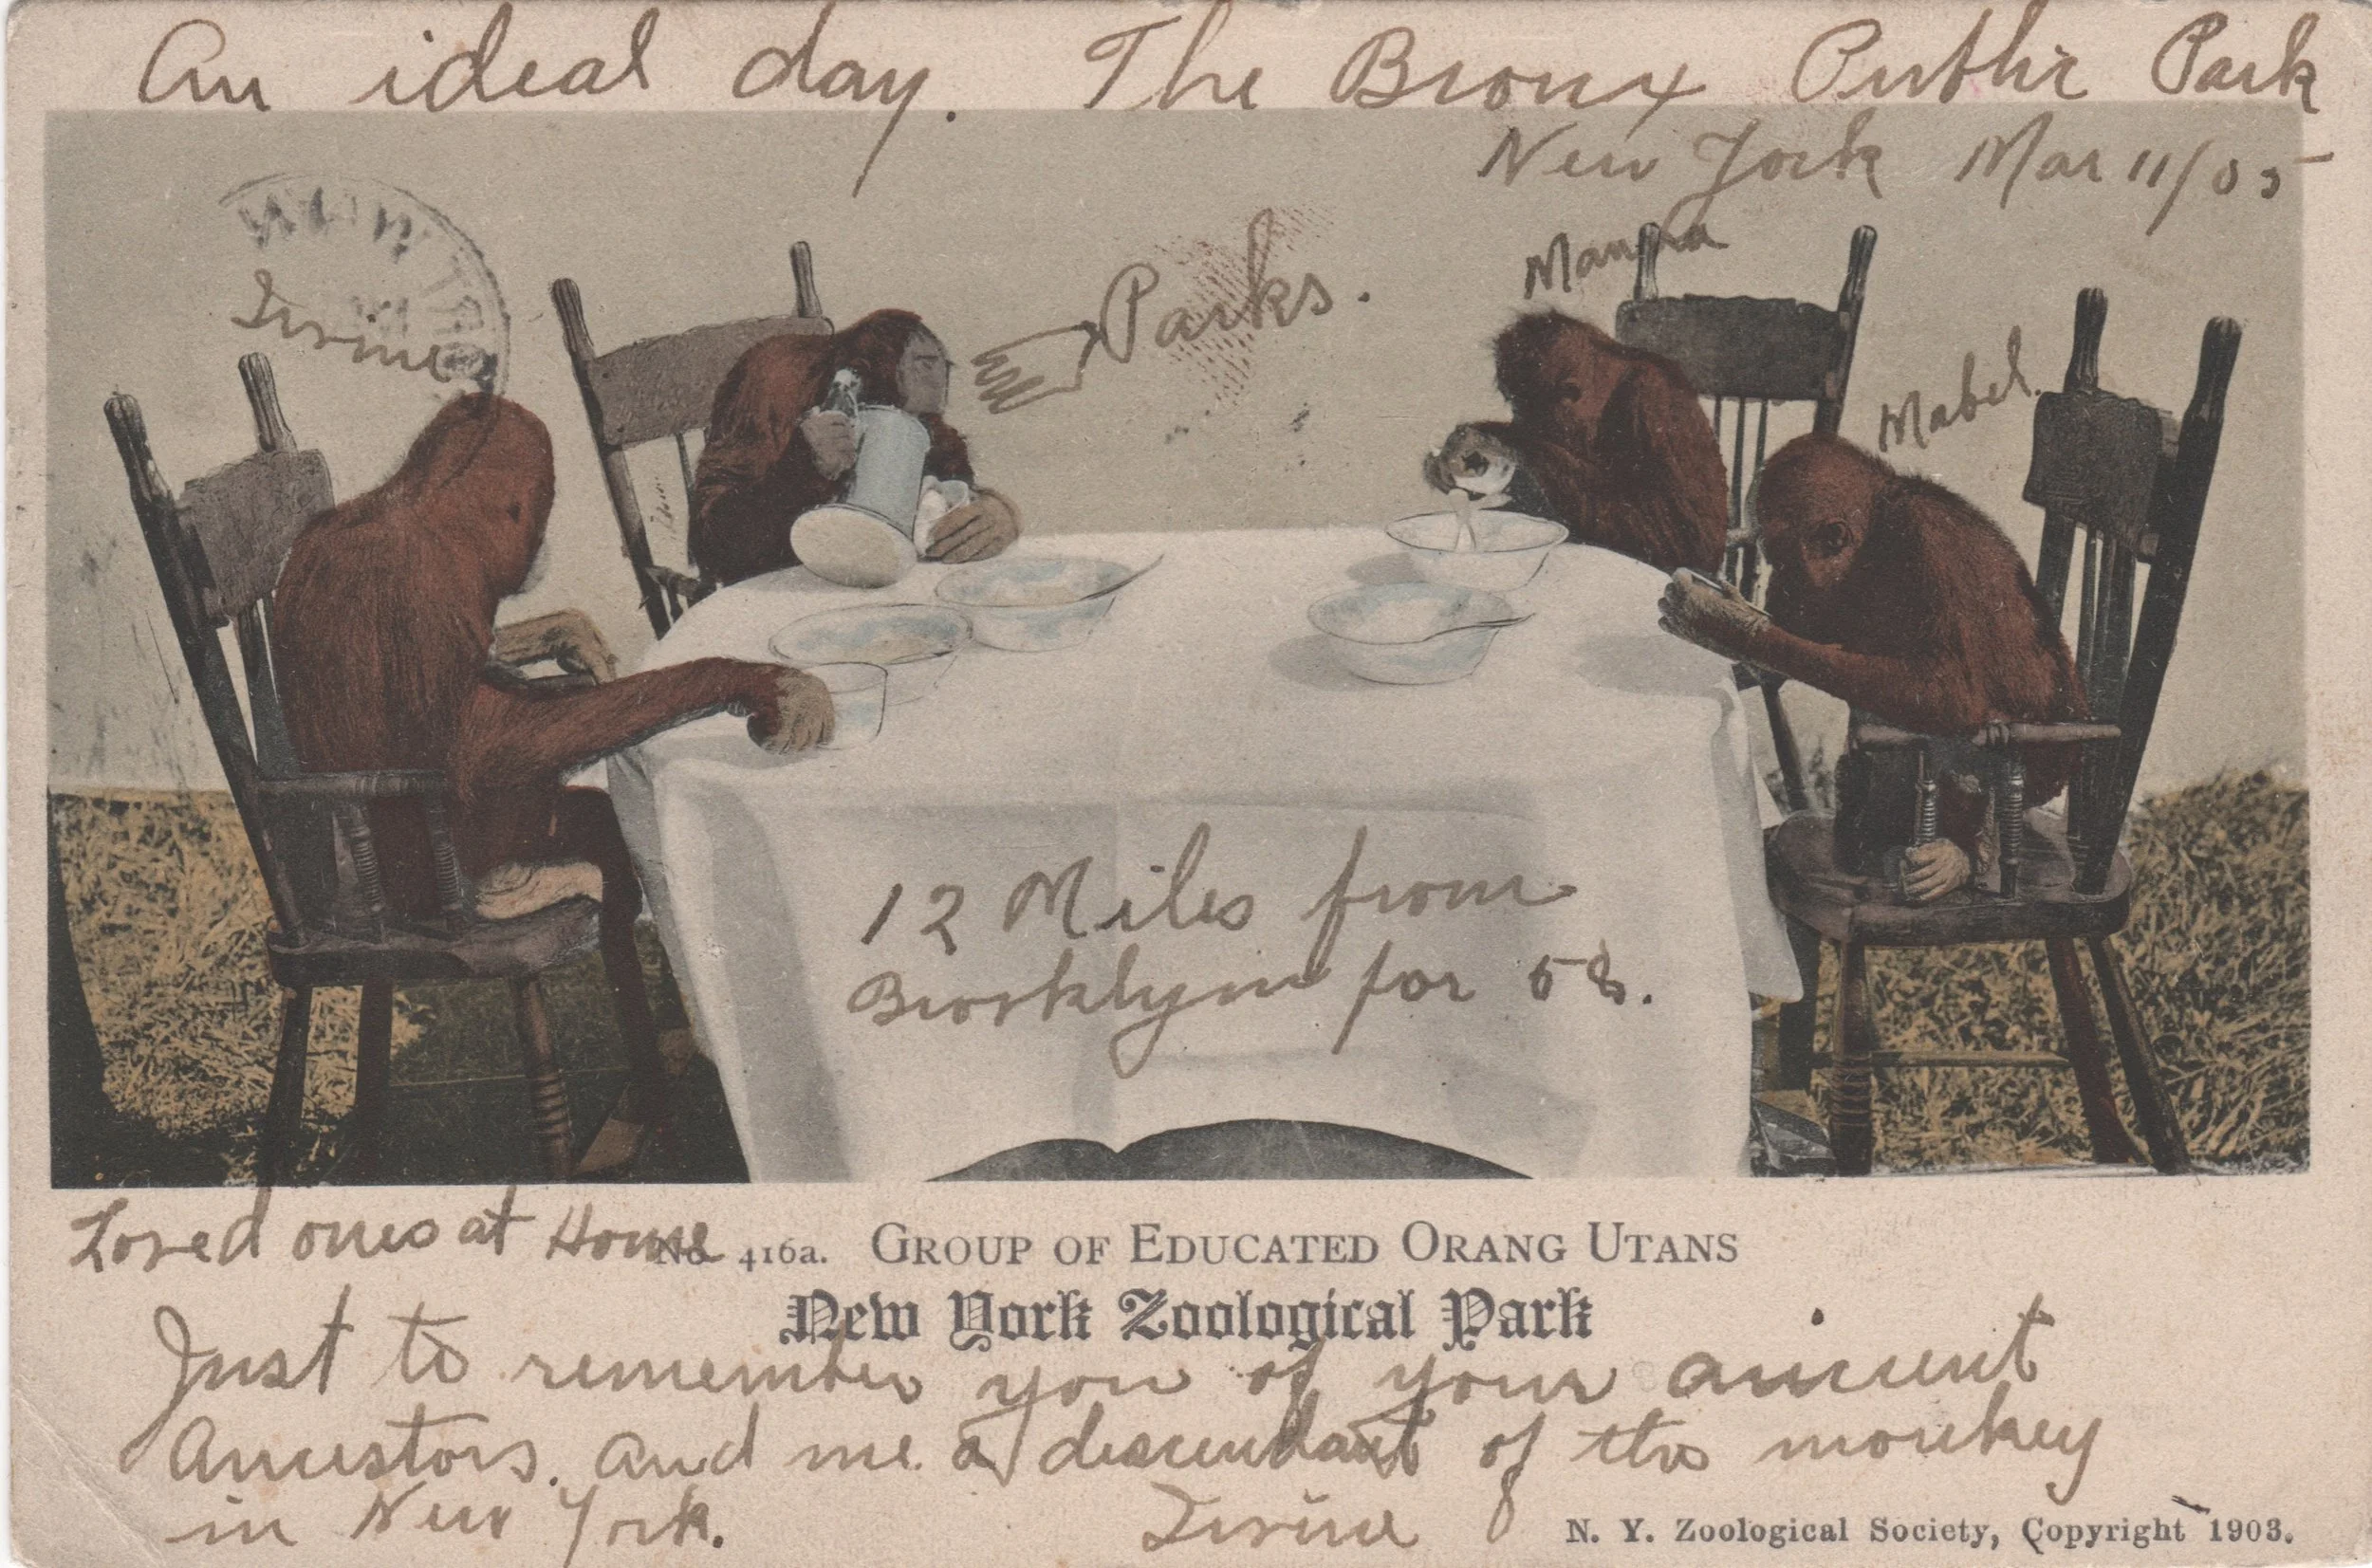 An ideal day. The Bronx Public Park
New York Mar 11/05
Mamma
Parks.
Mabel.
12 Miles from
Brooklyn for 5¢.
Loved ones at Home
No. 416a. GROUP OF EDUCATED ORANG UTANS
New York Zoological Park
Just to remember you of your ancient
Ancestors. and me a descendant of the monkey
in New York.
N. Y. Zoological Society, Copyright 1903.